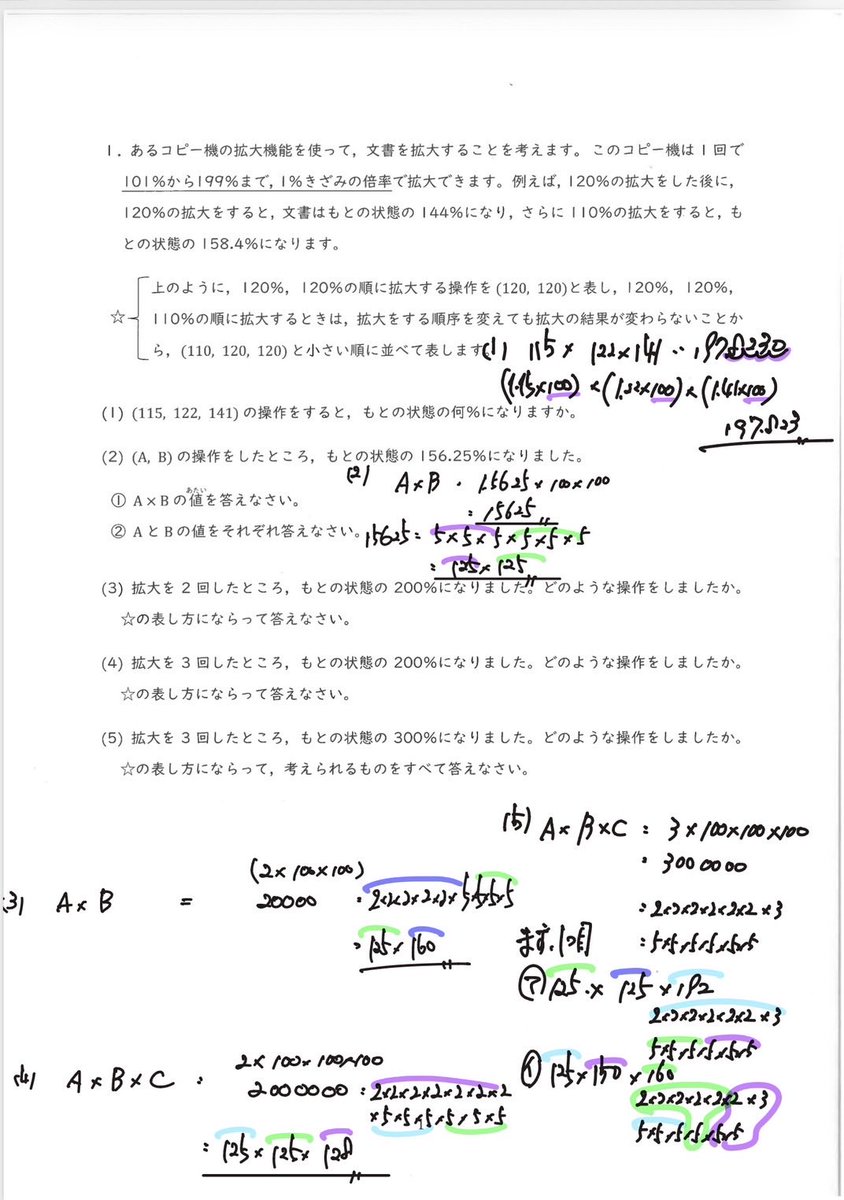 1. あるコピー機の拡大機能を使って，文書を拡大することを考えます。このコピー機は1回で
101%から199%まで，1%きざみの倍率で拡大できます。例えば，120%の拡大をした後に，
120%の拡大をすると，文書はもとの状態の144%になり，さらに110%の拡大をすると，も
との状態の158.4%になります。
上のように，120%，120%の順に拡大する操作を(120, 120)と表し，120%，120%，
☆ 110%の順に拡大するときは，拡大をする順序を変えても拡大の結果が変わらないことか
ら，(110, 120, 120)と小さい順に並べて表します
(1) 115 × 122 × 141
(1.15×100) × (1.22×100) × (1.41×100)
(1) (115, 122, 141) の操作をすると，もとの状態の何%になりますか。
197.823
(2) (A, B) の操作をしたところ，もとの状態の156.25%になりました。
(2) A×B = 1.5625×100×100
① A×Bの値を答えなさい。
あたい
= 15625
② AとBの値をそれぞれ答えなさい。
15625 = 5×5×5×5×5×5
= 125×125
(3) 拡大を2回したところ，もとの状態の200%になりました。どのような操作をしましたか。
☆の表し方にならって答えなさい。
(4) 拡大を3回したところ，もとの状態の200%になりました。どのような操作をしましたか。
☆の表し方にならって答えなさい。
(5) 拡大を3回したところ，もとの状態の300%になりました。どのような操作をしましたか。
☆の表し方にならって，考えられるものをすべて答えなさい。
(5) A×B×C = 3×100×100×100
= 3000000
= 2×2×2×2×2×2×3
×5×5×5×5×5×5
(3) A×B = (2×100×100)
20000 = 2×2×2×2×2×5×5×5×5
= 125×160
㋐ 125×125×192
2×2×2×2×2×2×3
5×5×5×5×5×5
(4) A×B×C = 2×100×100×100
2000000 = 2×2×2×2×2×2×2
×5×5×5×5×5×5
= 125×125×128
㋑ 125×150×160
2×2×2×2×2×2×3
5×5×5×5×5×5